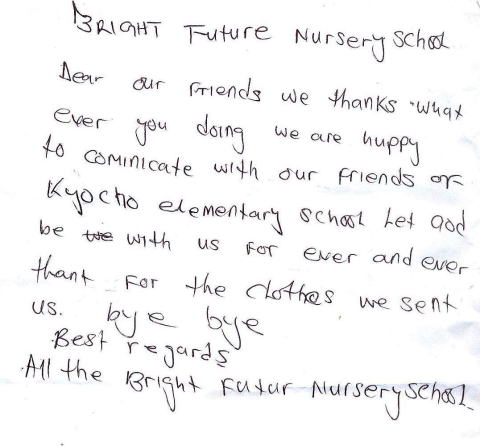 BRIGHT Future Nursery school
Dear our friends we thanks what
ever you doing we are huppy
to cominicate with our friends of
Kyocho elementary school Let god
be we with us for ever and ever
thant for the clothes we sent
us. bye bye
Best regards
All the Bright Futur Nursery school